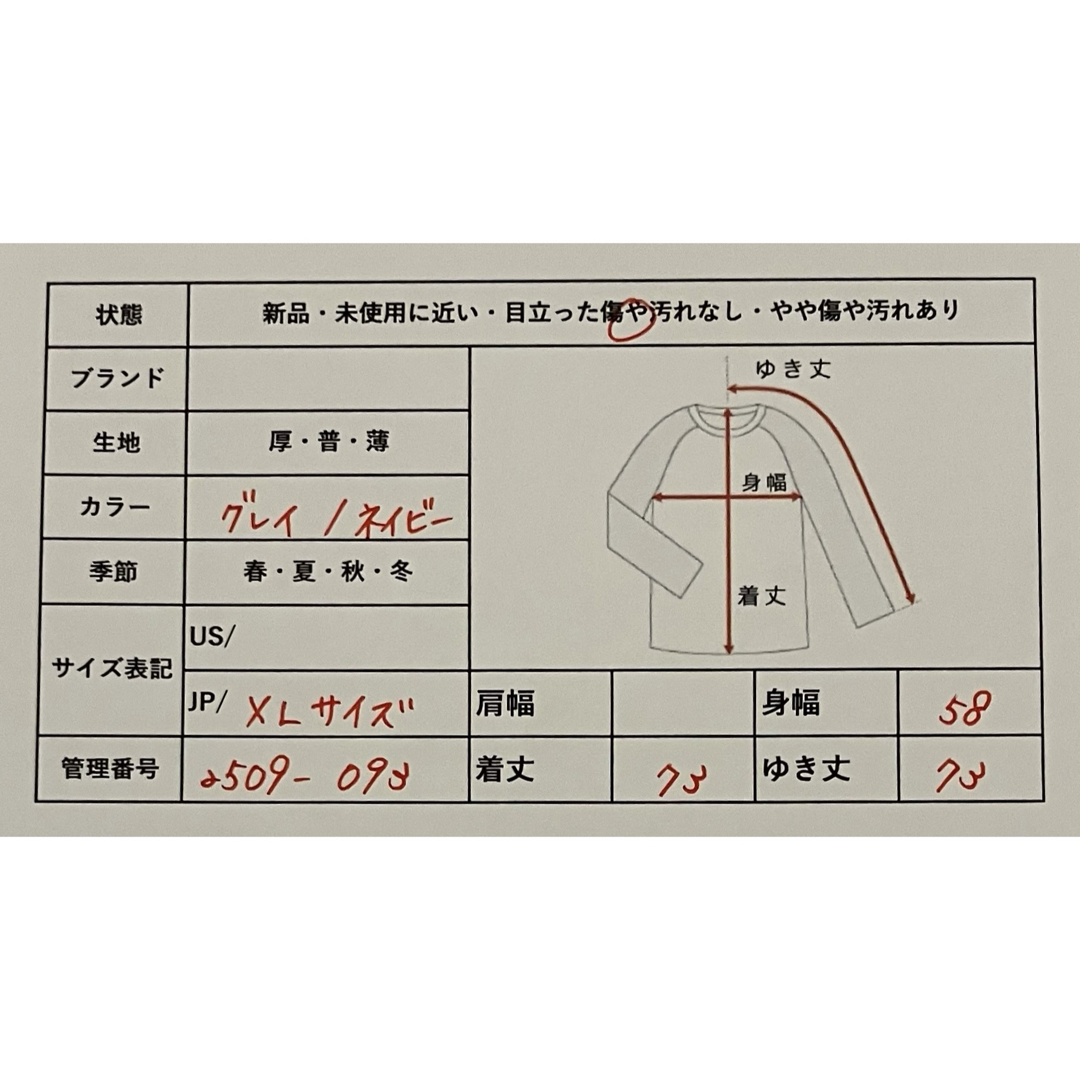 状態 新品・未使用に近い・目立った傷や汚れなし・やや傷や汚れあり
ブランド
ゆき丈
生地 厚・普・薄
カラー グレイ / ネイビー
身幅
季節 春・夏・秋・冬
着丈
サイズ表記
US/
JP/ XLサイズ 肩幅 身幅 58
管理番号 2509-093 着丈 73 ゆき丈 73